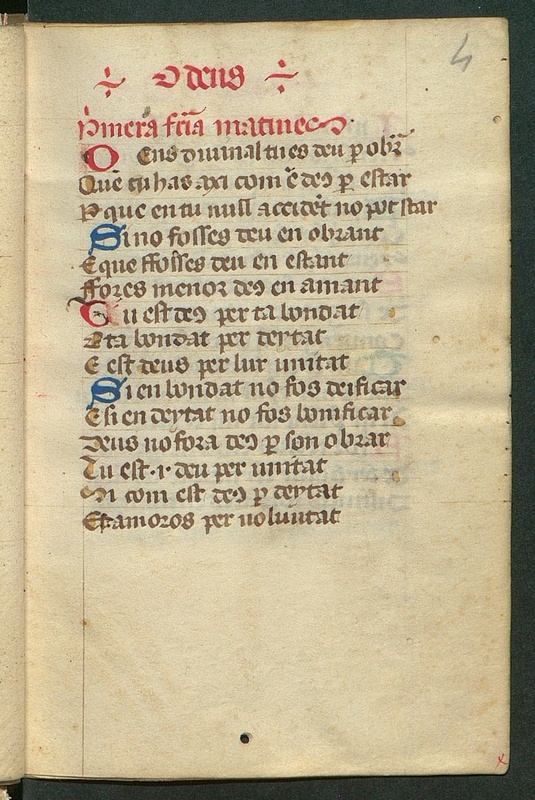 4
÷ O deus ÷
Primera fria matines
O Eus diuinal tu es deu p obrar
Que tu has axi com es deꝯ p estar
Pque en tu null accidēt no pot star
Si no fosses deu en obrant
E que ffosses deu en estant
ffores menor deꝯ en amant
Tu est deꝯ per ta bondat
E ta bondat per deytat
E est deus per lur unitat
Si en bondat no fos deificar
E si en deytat no fos bonificar
Deus no fora deꝯ p son obrar
Tu est .i. deu per unitat
Ni com est deꝯ p deytat
Est amoros per uoluntat
x